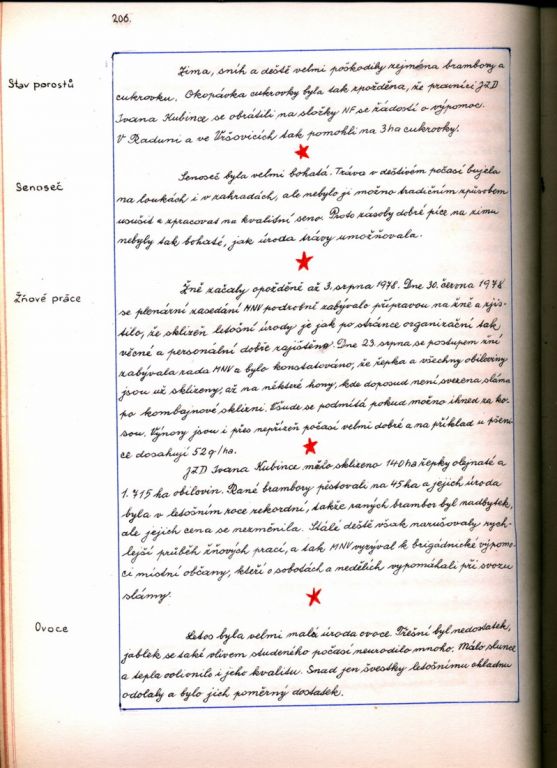 206.
Stav porostů
Zima, sníh a deště velmi poškodily zejména brambory a
cukrovku. Okopávka cukrovky byla tak zpožděna, že pracovníci JZD
Ivana Kubince se obrátili na složky NF se žádostí o výpomoc.
V Raduni a ve Vršovicích tak pomohli na 3 ha cukrovky.
Senoseč
Senoseč byla velmi bohatá. Tráva v deštivém počasí bujela
na loukách i v zahradách, ale nebylo ji možno tradičním způsobem
usušit a zpracovat na kvalitní seno. Proto zásoby dobré píce na zimu
nebyly tak bohaté, jak úroda trávy umožňovala.
Žňové práce
Žně začaly opožděně až 3. srpna 1978. Dne 30. června 1978
se plenární zasedání MNV podrobně zabývalo přípravou na žně a zjis-
tilo, že sklizeň letošní úrody je jak po stránce organizační tak
věcné a personální dobře zajištěna. Dne 23. srpna se postupem žní
zabývala rada MNV a bylo konstatováno, že řepka a všechny obiloviny
jsou už sklizeny, až na některé hony, kde doposud není svezena sláma
po kombajnové sklizni. Všude se podmítá pokud možno ihned za ko-
sou. Výnosy jsou i přes nepřízeň počasí velmi dobré a na příklad u pšeni-
ce dosahují 52 q/ha.
JZD Ivana Kubince mělo sklizeno 140 ha řepky olejnaté a
1.715 ha obilovin. Rané brambory pěstovali na 45 ha a jejich úroda
byla v letošním roce rekordní, takže raných brambor byl nadbytek,
ale jejich cena se nezměnila. Stálé deště však narušovaly rych-
lejší průběh žňových prací, a tak MNV vyzýval k brigádnické výpomo-
ci místní občany, kteří o sobotách a nedělích vypomáhali při svozu
slámy.
Ovoce
Letos byla velmi malá úroda ovoce. Třešní byl nedostatek,
jablek se také vlivem studeného počasí neurodilo mnoho. Málo slunce
a tepla ovlivnilo i jeho kvalitu. Snad jen švestky letošnímu chladnu
odolaly a bylo jich poměrný dostatek.